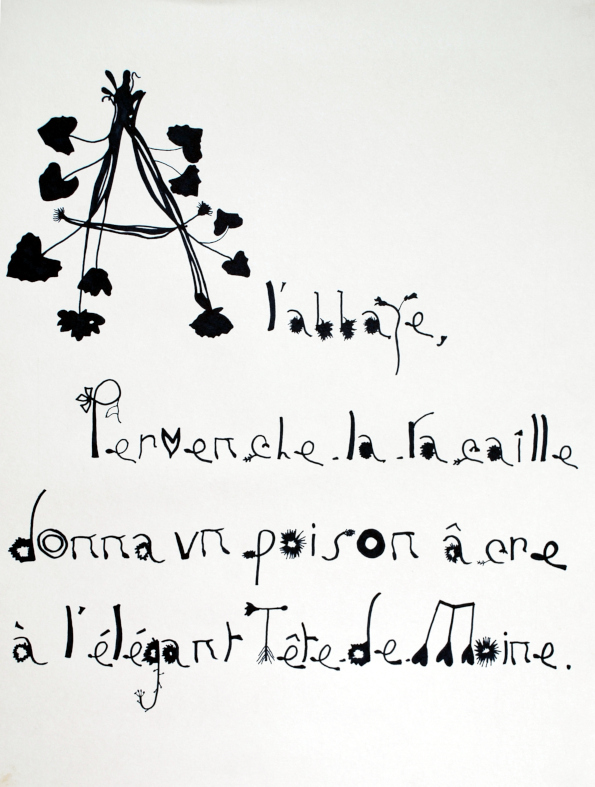 A l'abbaye,
Pervenche.la.racaille
donna un poison âcre
à l'élégant Tête.de.Moine.